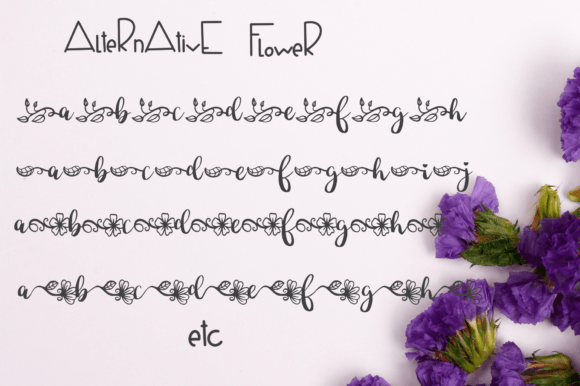 AlteRnAtivE FloweR
a b c d e f g h
a b c d e f g h i j
a b c d e f g h
a b c d e f g h
etc